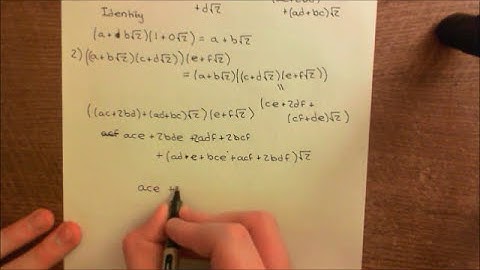 +d√2)
+(ad+bc)√2
Identity
(a+b√2)(1+0√2)=a+b√2
2)((a+b√2)(c+d√2))(e+f√2)
=(a+b√2)((c+d√2)(e+f√2))
=
(ce+2df+
(cf+de)√2)
((ac+2bd)+(ad+bc)√2)(e+f√2)
ace+2bde+2adf+2bcf
+(ad•e+bce+acf+2bdf)√2
ace +